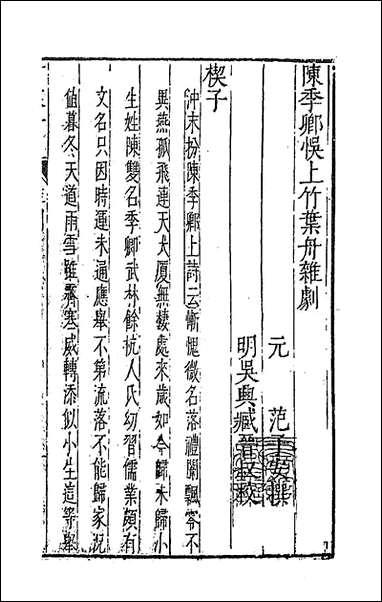 陳季卿悞上竹葉舟雜劇
元 范子安撰
明吳興臧晉叔校
楔子
沖末扮陳季卿上詩云慚愧微名落禮闈飄零不
異燕孤飛連天大厦無棲處來歲如今歸未歸小
生姓陳雙名季卿武林餘杭人氏幼習儒業頗有
文名只因時運未通應舉不第流落不能歸家況
值暮冬天道雨雪雖霽寒威轉添似小生這等舉